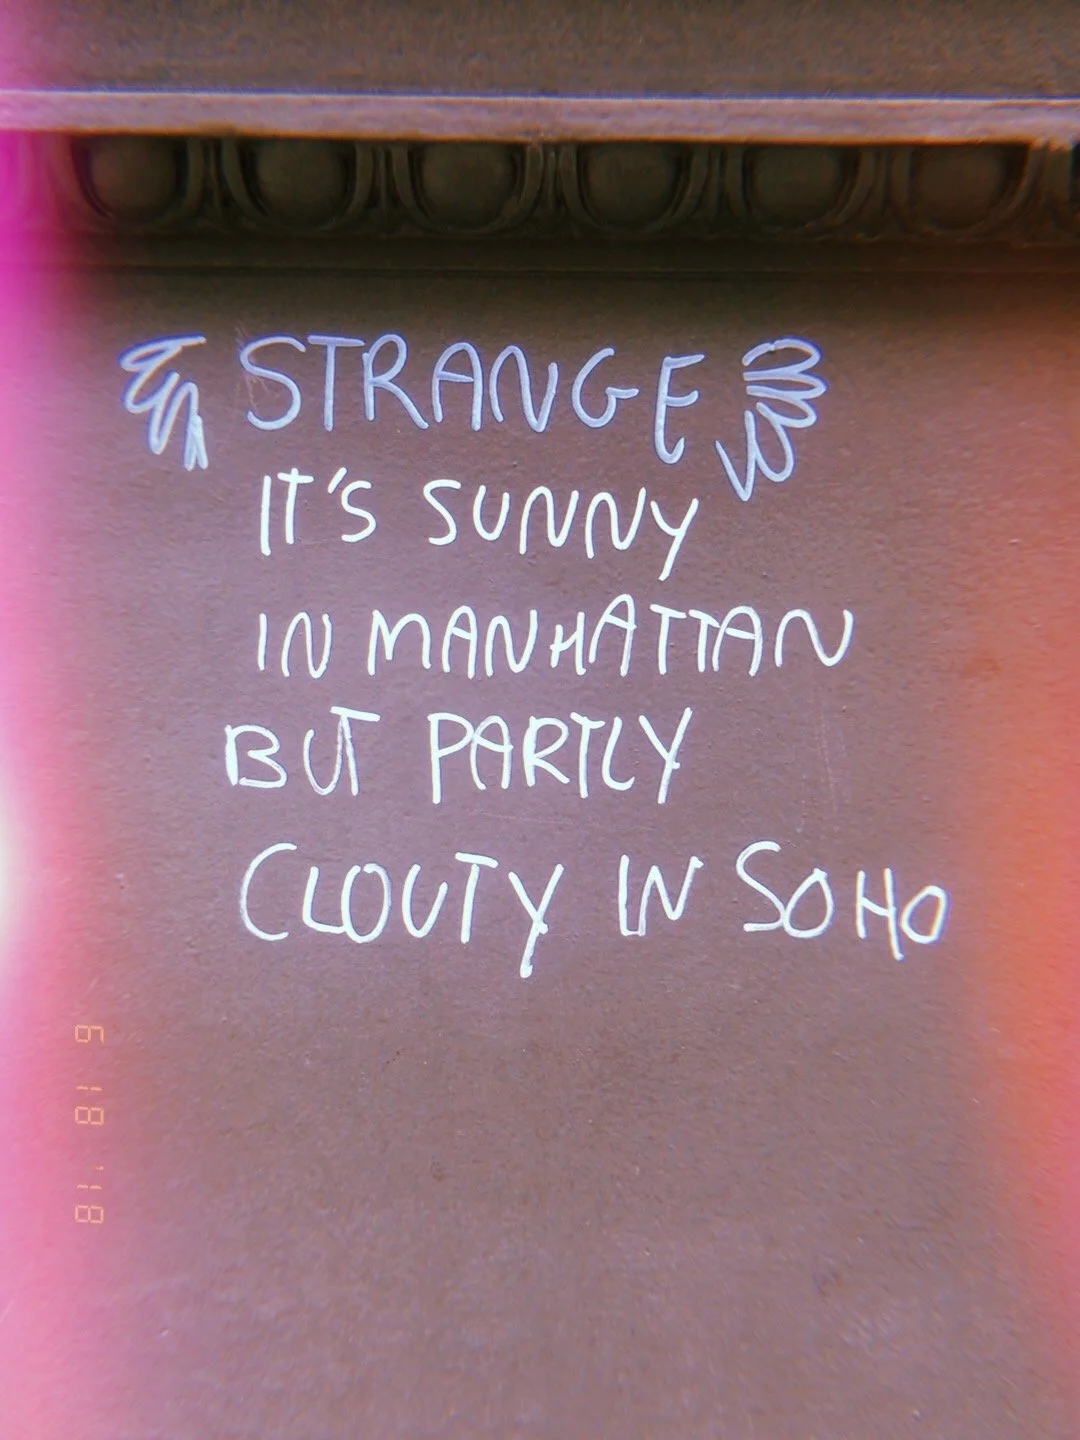 STRANGE
IT'S SUNNY
IN MANHATTAN
BUT PARTLY
CLOUTY IN SOHO
6 18 '18